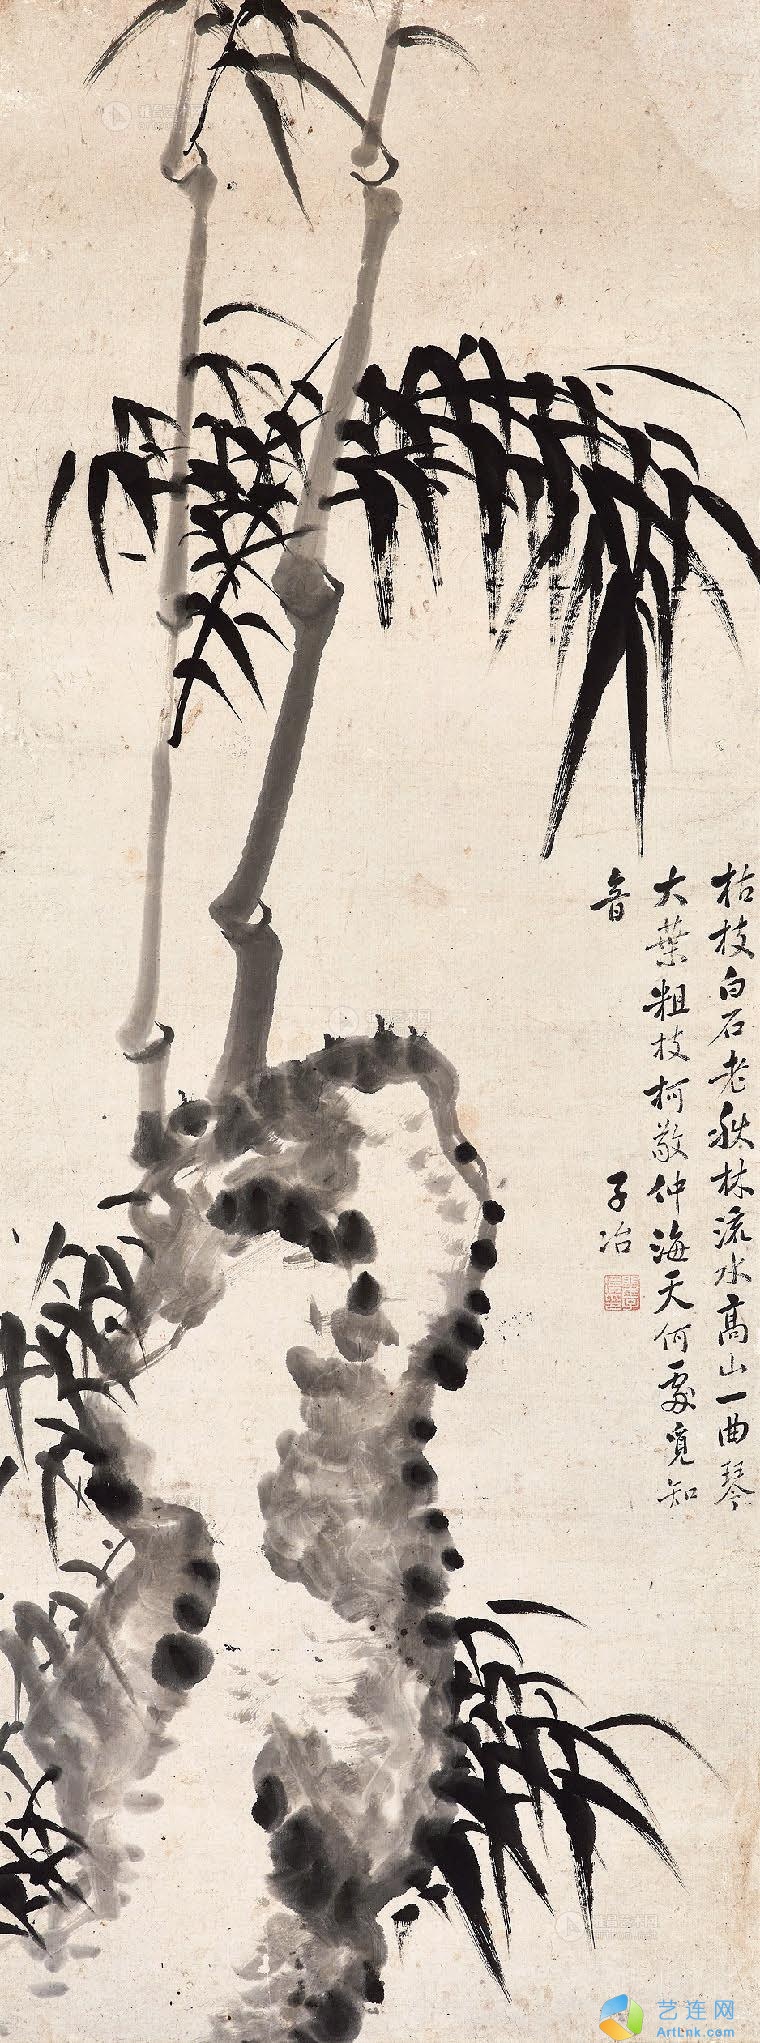 枯枝白石老秋林流水高山一曲琴
大葉粗枝柯敬仲海天何處覓知
音
子冶
艺连网
ArtLink.com